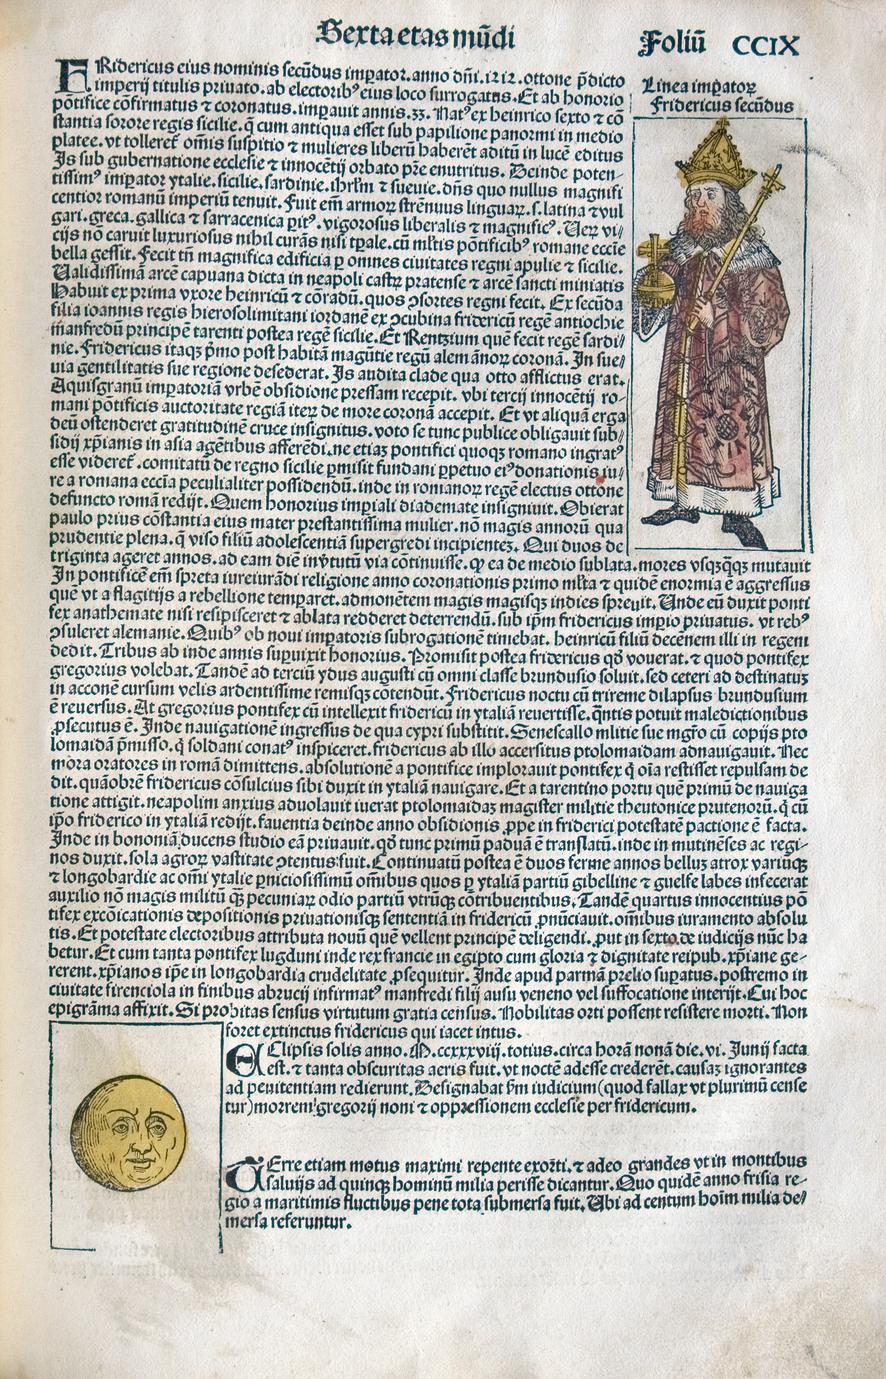 Sexta etas mũdi
Foliũ CCIX
Linea imꝑatoꝝ
Fridericus secũdus
FRidericus eius nominis secũdus imꝑator. anno dñi. 1212. ottone p̃dicto
imperij titulis priuato. ab electoribꝰ eius loco surrogatus. Et ab honorio
põtifice cõfirmatus ⁊ coronatus. imꝑauit annis. 33. Natꝰ ex heinrico sexto ⁊ cõ
stantia sorore regis sicilie. q̃ cum antiqua esset sub papilione panormi in medio
platee. vt tolleret᷑ om̃is suspitio ⁊ mulieres liberũ haberẽt aditũ in lucẽ editus
Is sub gubernatione ecclesie ⁊ innocẽtij orbato pr̃e enutritus. Deinde poten-
tissimꝰ imꝑator ytalie. sicilie. sardinie. ihrl̃m ⁊ sueuie. dñs quo nullus magnifi
centior romanũ imperiũ tenuit. Fuit em̃ armoꝝ strẽnuus linguaꝝ. s. latina ⁊ vul
gari. greca. gallica ⁊ sarracenica ꝑitꝰ. vigorosus liberalis ⁊ magnificꝰ. Ueꝝ vi/
cijs nõ caruit luxuriosus nihil curãs nisi tꝑale. cũ ml̃tis põtificibꝰ romane eccĩe
bella gessit. Fecit tñ magnifica edificia ꝑ omnes ciuitates regni apulie ⁊ sicilie.
Ualidissimã arcẽ capuana dicta in neapoli castꝝ pratense ⁊ arcẽ sancti miniatis
Habuit ex prima vxore heinricũ ⁊ cõradũ. quos ꝯsortes regni fecit. Ex secũda
filia ioannis regis hierosolimitani iordanẽ ex ꝯcubina fridericũ regẽ antiochie
manfredũ principẽ tarenti postea regẽ sicilie. Et Rentzium quẽ fecit regẽ sardi/
nie. Fridericus itaqꝫ p̃mo post habitã magũtie regũ alemãnoꝝ coronã. In sue/
uia gentilitatis sue regione desederat. Is audita clade qua otto afflictus erat.
Aquisgranũ imꝑatoriã vrbẽ obsidione pressam recepit. vbi tercij innocẽtij ro-
mani põtificis auctoritate regiã iteꝝ de more coronã accepit. Et vt aliquã erga
deũ ostenderet gratitudinẽ cruce insignitus. voto se tunc publice obligauit sub/
sidij xp̃ianis in asia agẽtibus afferẽdi. ne etiaꝫ pontifici quoqꝫ romano ingratꝰ
esse videret᷑. comitatũ de regno sicilie ꝑmisit fundani ꝑpetuo eiꝰ donationis iu/
re a romana eccĩa peculialiter possidendũ. inde in romanoꝝ regẽ electus ottone
defuncto romã redijt. Quem honorius imꝑiali diademate insigniuit. Obierat
paulo prius cõstantia eius mater prestantissima mulier. nõ magis annorũ qua
prudentie plena. q̃ viso filiũ adolescentiã supergredi incipienteꝫ. Qui duos de
triginta ageret annos. ad eam diẽ in v̾tutũ via cõtinuisse. Qꝫ ea de medio sublata. mores vsqꝫq̃qꝫ mutauit
In pontificẽ em̃ spreta iureiurãdi religione anno coronationis primo ml̃ta ⁊ quidẽ enormia ẽ aggressus
quẽ vt a flagitijs a rebellione temꝑaret. admonẽtem magis magisqꝫ indies spreuit. Unde eũ duxit ponti
fex anathemate nisi resipisceret ⁊ ablata redderet deterrendũ. sub ip̃m fridericus imꝑio priuatus. vt rebꝰ
ꝯsuleret alemanie. Quibꝰ ob noui imꝑatoris subrogationẽ timebat. heinricũ filiũ decẽnem illi in regem
dedit. Tribus ab inde annis suꝑuixit honorius. Promisit postea fridericus qd̾ vouerat. ⁊ quod pontifex
gregorius volebat. Tandẽ ad terciũ ydus augusti cũ omni classe brundusio soluit. sed ceteri ad destinatuꝫ
in acconẽ cursum velis ardentissime remisqꝫ cõtendũt. Fridericus noctu cũ trireme dilapsus brundusium
ẽ reuersus. At gregorius pontifex cũ intellexit fridericũ in ytaliã reuertisse. q̃ntis potuit maledictionibus
ꝓsecutus ẽ. Inde nauigationẽ ingressus de qua cypri substitit. Senescallo militie sue mgr̃o cũ copijs pto
lomaidam p̃misso. q̃ soldani conatꝰ inspiceret. fridericus ab illo accersitus ptolomaidam adnauigauit. Nec
mora oratores in romã dimittens. absolutionẽ a pontifice implorauit pontifex q̃ oĩa restisset repulsam de
dit. quãobrẽ fridericus cõsulcius sibi duxit in ytaliã nauigare. Et a tarentino portu quẽ primũ de nauiga
tione attigit. neapolim anxius aduolauit iuerat ptolomaidaꝫ magister militie theutonice prutenorũ. q̃ cũ
ip̃o friderico in ytaliã redijt. fauentia deinde anno obsidionis ꝓpe in friderici potestatẽ pactione ẽ facta.
Inde in bononiã ducens studio eã priuauit. qd̾ tunc primũ paduã ẽ translatũ. inde in mutinẽses ac regi-
nos duxit. sola agroꝝ vastitate ꝯtentus fuit. Continuatũ postea ẽ duos ferme annos belluꝫ atrox variũqꝫ
⁊ longobardie ac om̃i ytalie ꝑniciosissimũ om̃ibus quos ꝑ ytaliã partiũ gibelline ⁊ guelfe labes infecerat
auxilio nõ magis militũ q̃ꝫ pecuniaꝝ odio partiũ vtrũqꝫ cõtribuentibus. Tandẽ quartus innocentius põ
tifex excõicationis depositionis priuationisqꝫ sententiã in fridericũ ꝓnũciauit. om̃ibus iuramento absolu
tis. Et potestate electoribus attributa nouũ quẽ vellent principẽ deligendi. ꝓut in sexto de iudicijs nũc ha
betur. Et cum tanta pontifex lugduni inde rex francie in egipto cum gloria ⁊ dignitate reipub. xp̃iane ge-
rerent. xp̃ianos ip̃e in longobardia crudelitate ꝓsequitur. Inde apud parmã prelio suꝑatus. postremo in
ciuitate firenciola in finibus abrucij infirmatꝰ manfredi filij ausu veneno vel suffocatione interijt. Cui hoc
epigrãma affixit. Si probitas sensus virtutum gratia census. Nobilitas orti possent resistere morti. Non
foret extinctus fridericus qui iacet intus.
EClipsis solis anno. M.ccxxxviij. totius. circa horã nonã die. vi. Junij facta
est. ⁊ tanta obscuritas aeris fuit. vt noctẽ adesse crederẽt. causaꝫ ignorantes
ad penitentiam redierunt. Designabat s̾m iudicium (quod fallax vt plurimũ cense
tur) mortem gregorij noni ⁊ oppressionem ecclesie per fridericum.
TErre etiam motus maximi repente exorti. ⁊ adeo grandes vt in montibus
saluijs ad quinqꝫ hominũ milia perisse dicantur. Quo quidẽ anno frisia re-
gio a maritimis fluctibus pene tota submersa fuit. Ubi ad centum hoĩm milia de/
mersa referuntur.